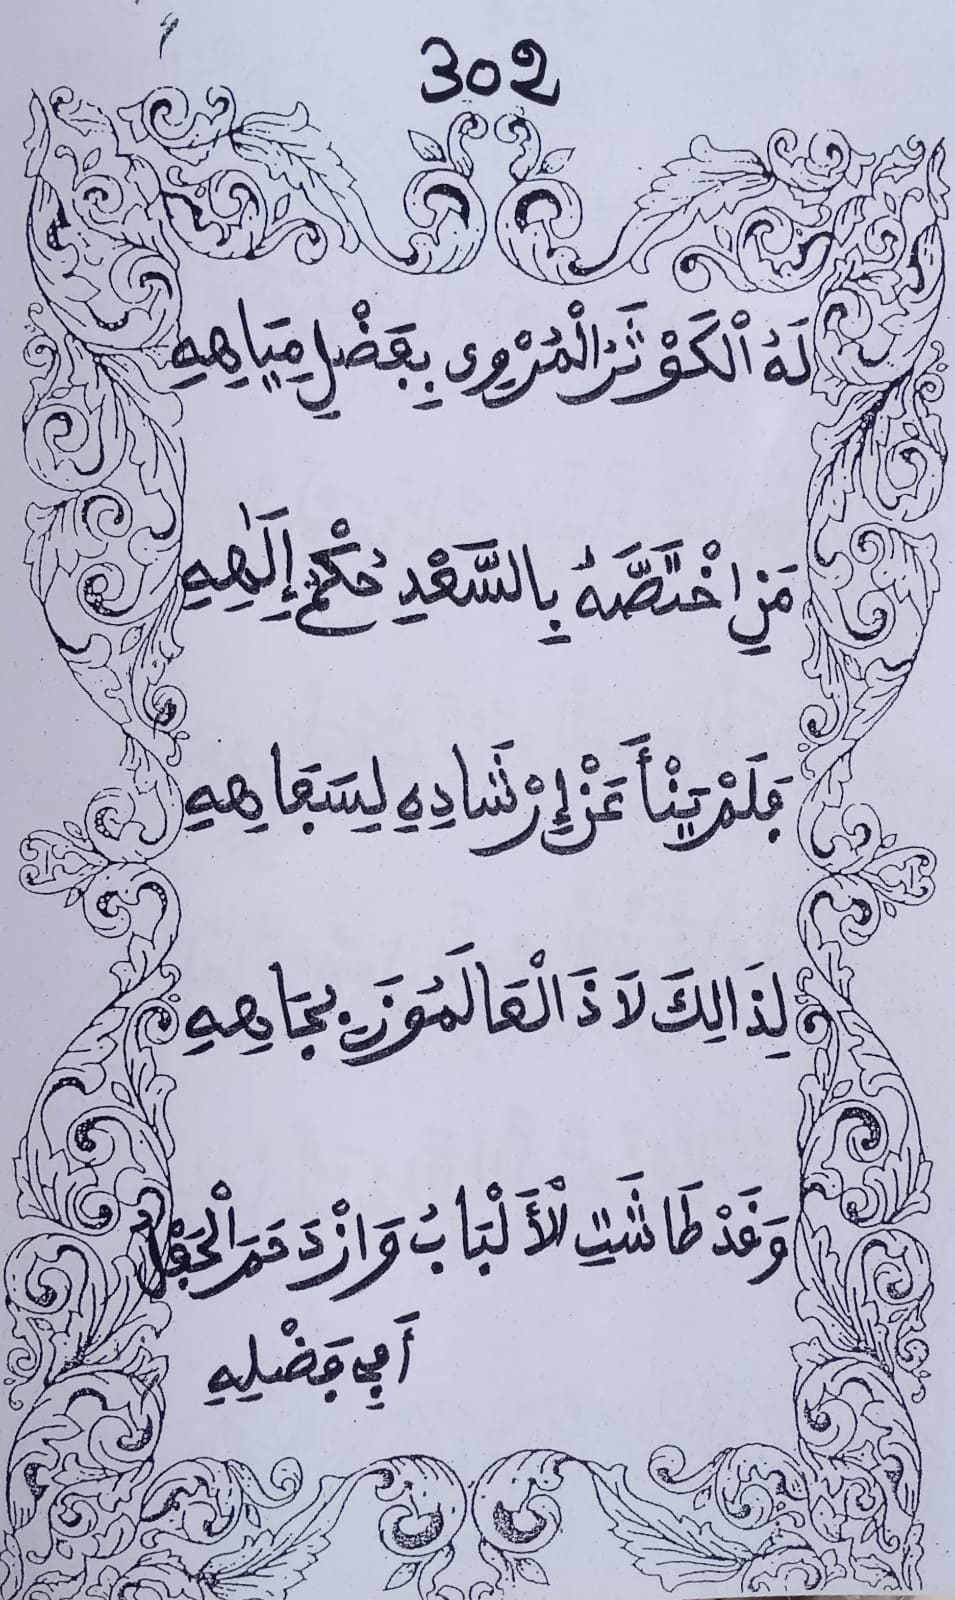 302
لَهُ الْكَوْثَرُ الْمُرْوِي بِفَضْلِ مِيَاهِهِ
مَنِ اخْتَصَّهُ بِالسَّعْدِ حُكْمُ إِلَٰهِهِ
فَلَمْ يَنْأَ عَنْ إِرْشَادِهِ لِسَفَاهِهِ
لِذَالِكَ لَاذَ الْعَالَمُونَ بِجَاهِهِ
وَقَدْ طَاشَتِ الْأَلْبَابُ وَازْدَحَمَ الْحَفْلُ
أَفِي فَضْلِهِ